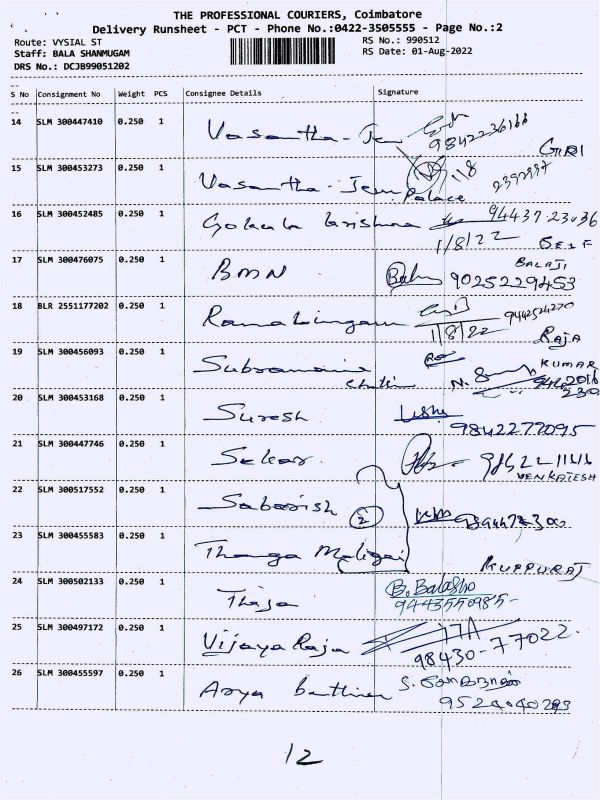 THE PROFESSIONAL COURIERS, Coimbatore
Delivery Runsheet - PCT - Phone No.:0422-3505555 - Page No.:2
Route: VYSIAL ST RS No.: 990512
Staff: BALA SHANMUGAM RS Date: 01-Aug-2022
DRS No.: DCJB99051202
S No Consignment No Weight PCS Consignee Details Signature
14 SLM 300447410 0.250 1 Vasantha - Jem 9842236166
GIRI
15 SLM 300453273 0.250 1 Vasantha - Jem Palace 1/8
16 SLM 300452485 0.250 1 Gokula krishna 94437.23036
1/8/22 SELF
BALAJI
17 SLM 300476075 0.250 1 BMN 9025229453
18 BLR 2551177202 0.250 1 Ramalingam 9442524270
1/8/22 RAJA
19 SLM 300456093 0.250 1 Subramania KUMAR
20 SLM 300453168 0.250 1 Suresh 9842277095
21 SLM 300447746 0.250 1 Sekar
VENKATESH
22 SLM 300517552 0.250 1 Sabarish 2
23 SLM 300455583 0.250 1 Thanga Maligai
KUPPURAJ
24 SLM 300502133 0.250 1 Thaja 9443550985
25 SLM 300497172 0.250 1 Vijaya Raja 98430-77022.
26 SLM 300455597 0.250 1 Arya
12